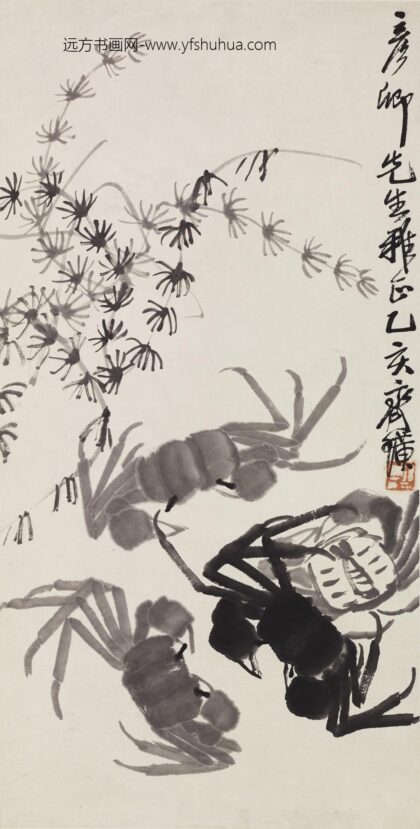 远方书画网-www.yfshuhua.com
彦卿先生雅正乙亥齐璜